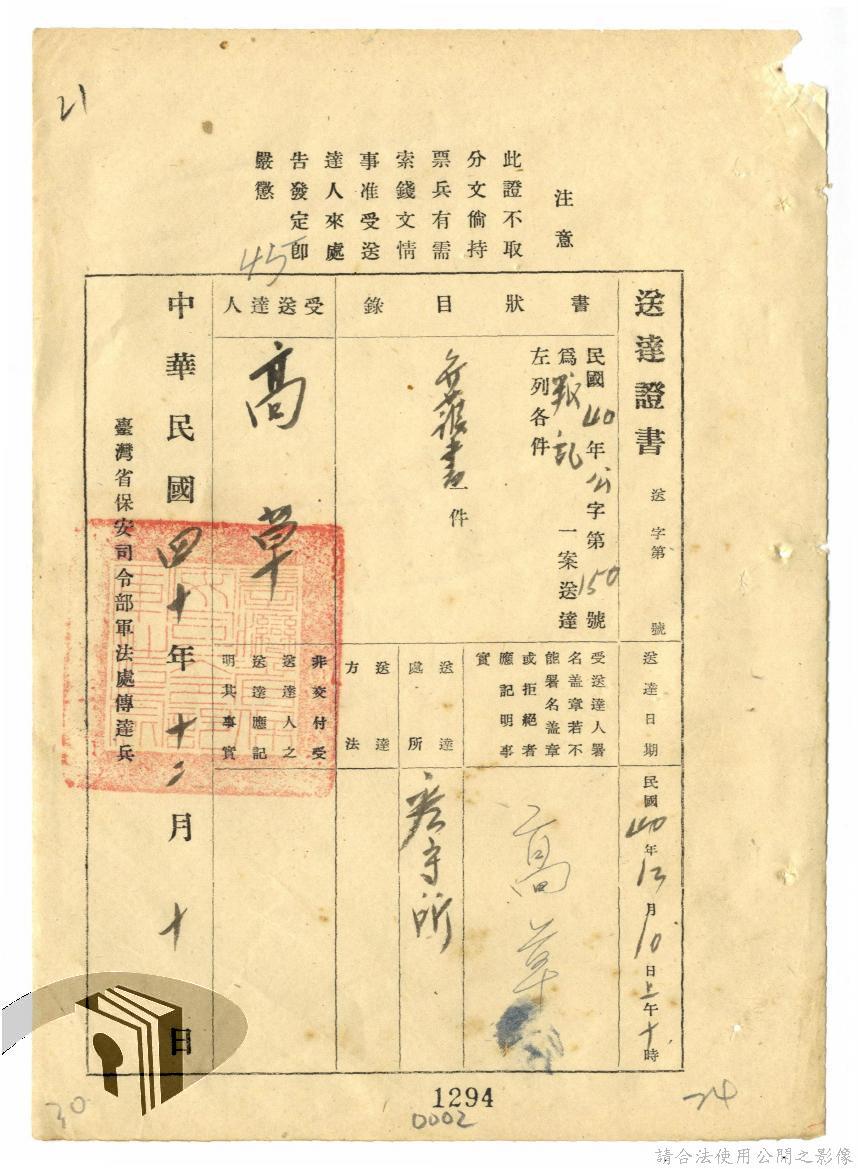 21
注意
此證不取
分文倘持
票兵有需
索錢文情
事准受送
達人來處
告發定卽
嚴懲
45
送達證書
送字第 號
書狀目錄
民國40年公字第150號
為叛亂一案送達
左列各件
一件
受送達人
高草
送達日期
民國40年12月10日上午十時
受送達人署
名盖章若不
能署名盖章
或拒絕者
應記明事
實
高草
送達
處所
看守所
送達
方法
非交付受
送達人之
送達應記
明其事實
中華民國四十年十二月十日
臺灣省保安司令部軍法處傳達兵
1294
0002
30
24
請合法使用公開之影像